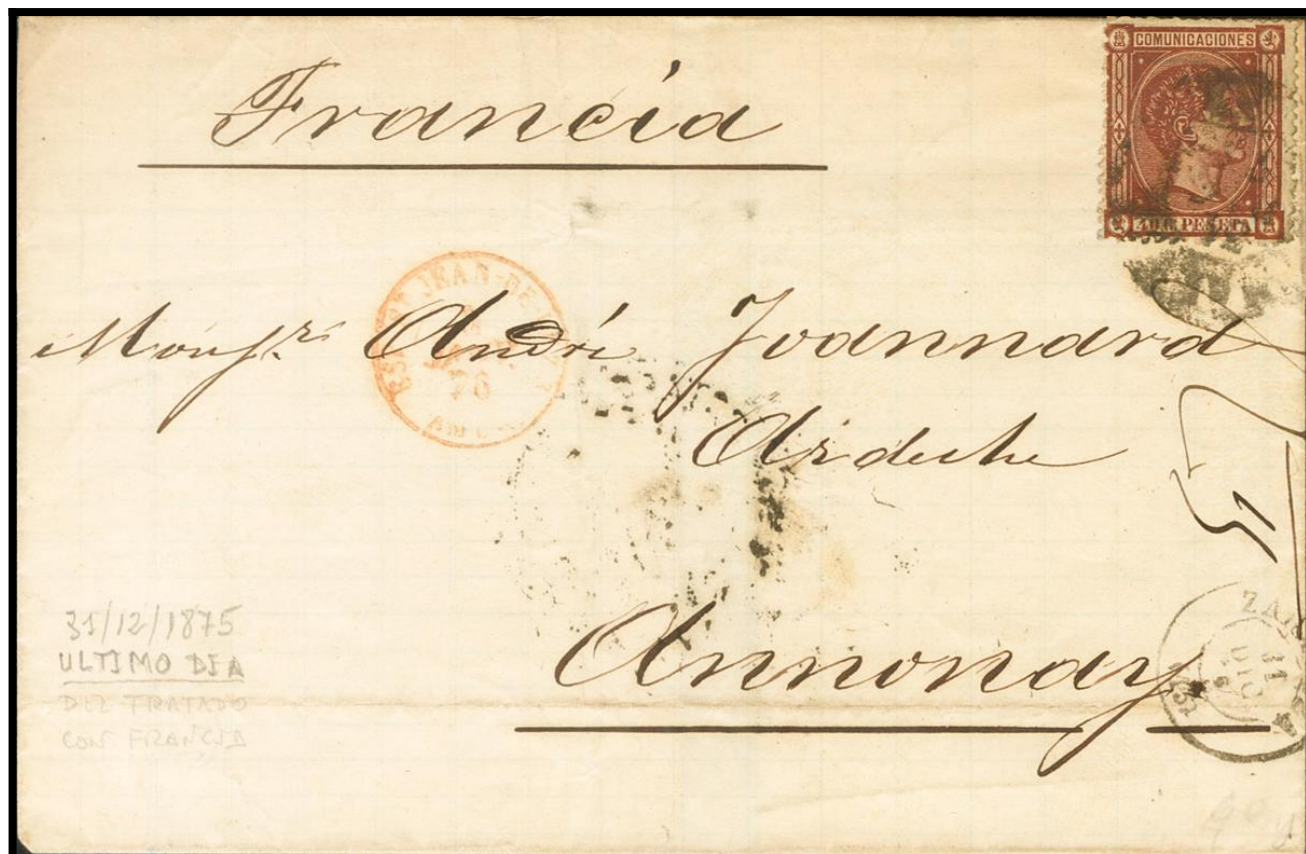 Francia
COMUNICACIONES
40 C. PESETA
JEAN-DE
76
Monsr. André Joannard
Ardeche
Annonay.
31/12/1875
ULTIMO DIA
DEL TRATADO
CON FRANCIA
31
DIC